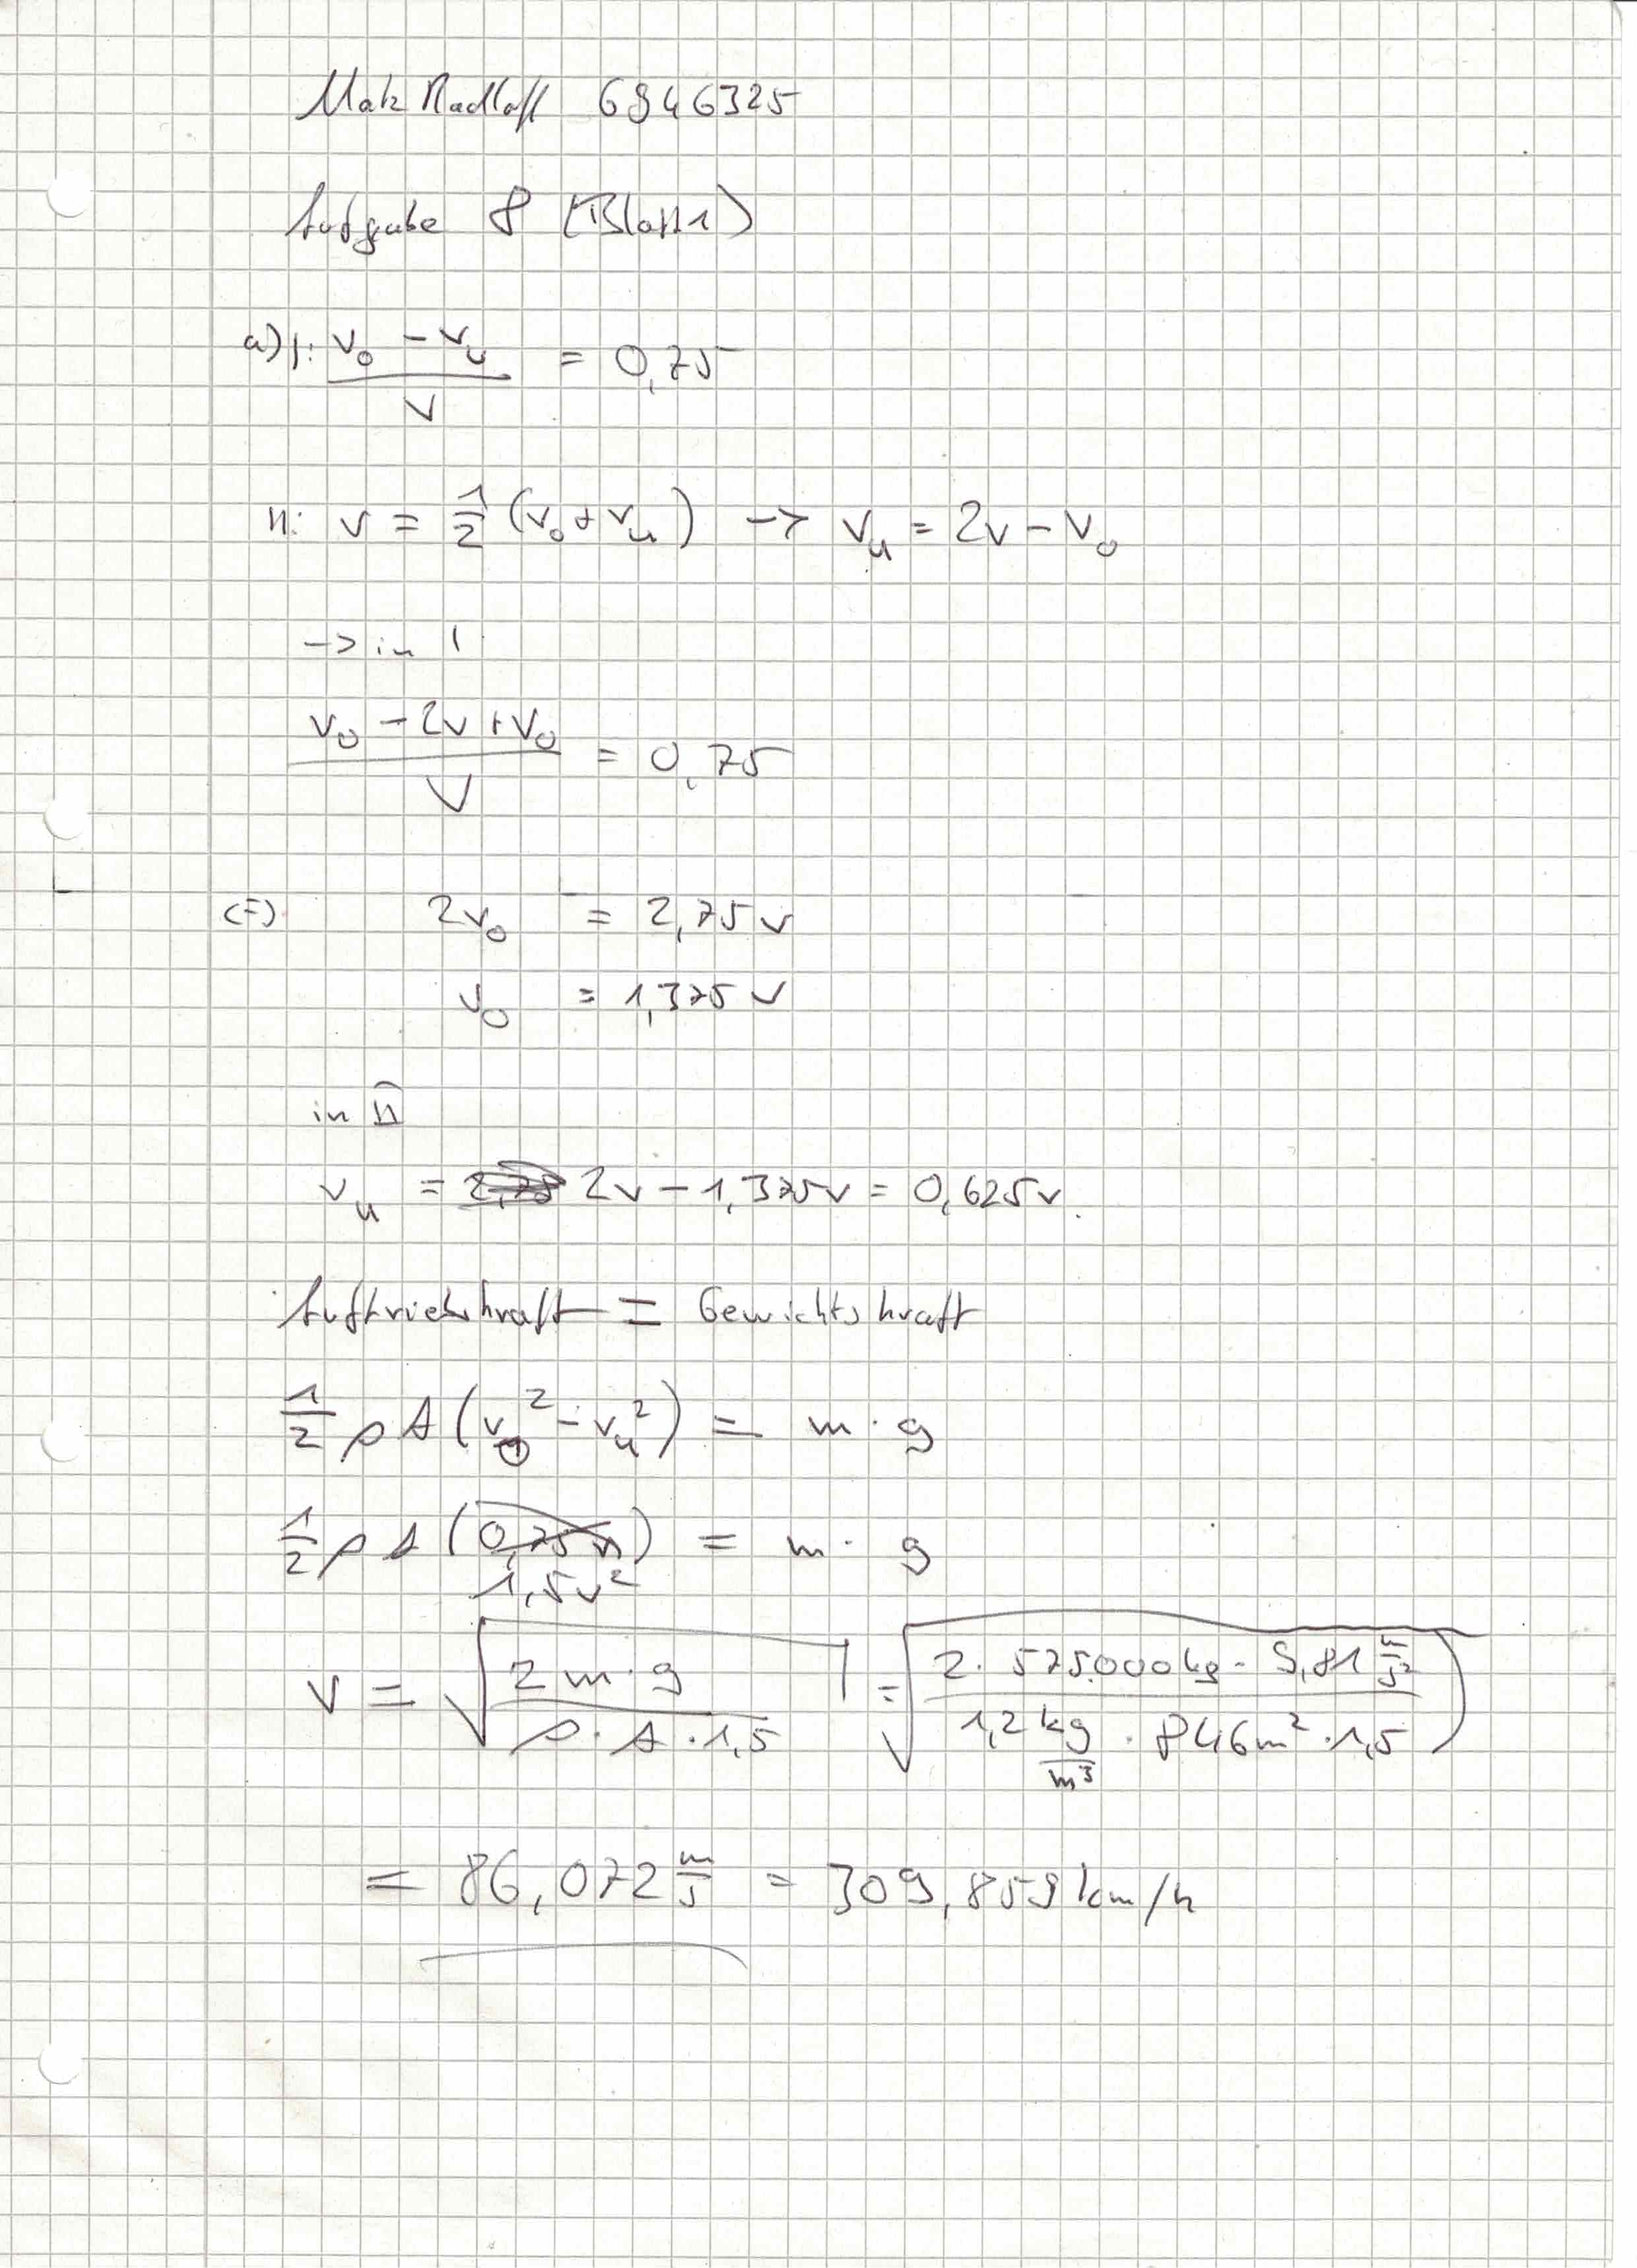 Matz Radloff 6946325
Aufgabe 8 (Blatt 1)
a) I: (v₀ - vᵤ) / v = 0,75
II: v = 1/2 (v₀ + vᵤ) -> vᵤ = 2v - v₀
-> in I
(v₀ - 2v + v₀) / v = 0,75
(=) 2v₀ = 2,75 v
v₀ = 1,375 v
in II
vᵤ = 2v - 1,375v = 0,625v.
Auftriebskraft = Gewichtskraft
1/2 ρ A (v₀² - vᵤ²) = m · g
1/2 ρ A (1,5v²) = m · g
v = √(2 m · g / (ρ · A · 1,5)) = √(2 · 575.000 kg · 9,81 m/s² / (1,2 kg/m³ · 846 m² · 1,5))
= 86,072 m/s = 309,859 km/h